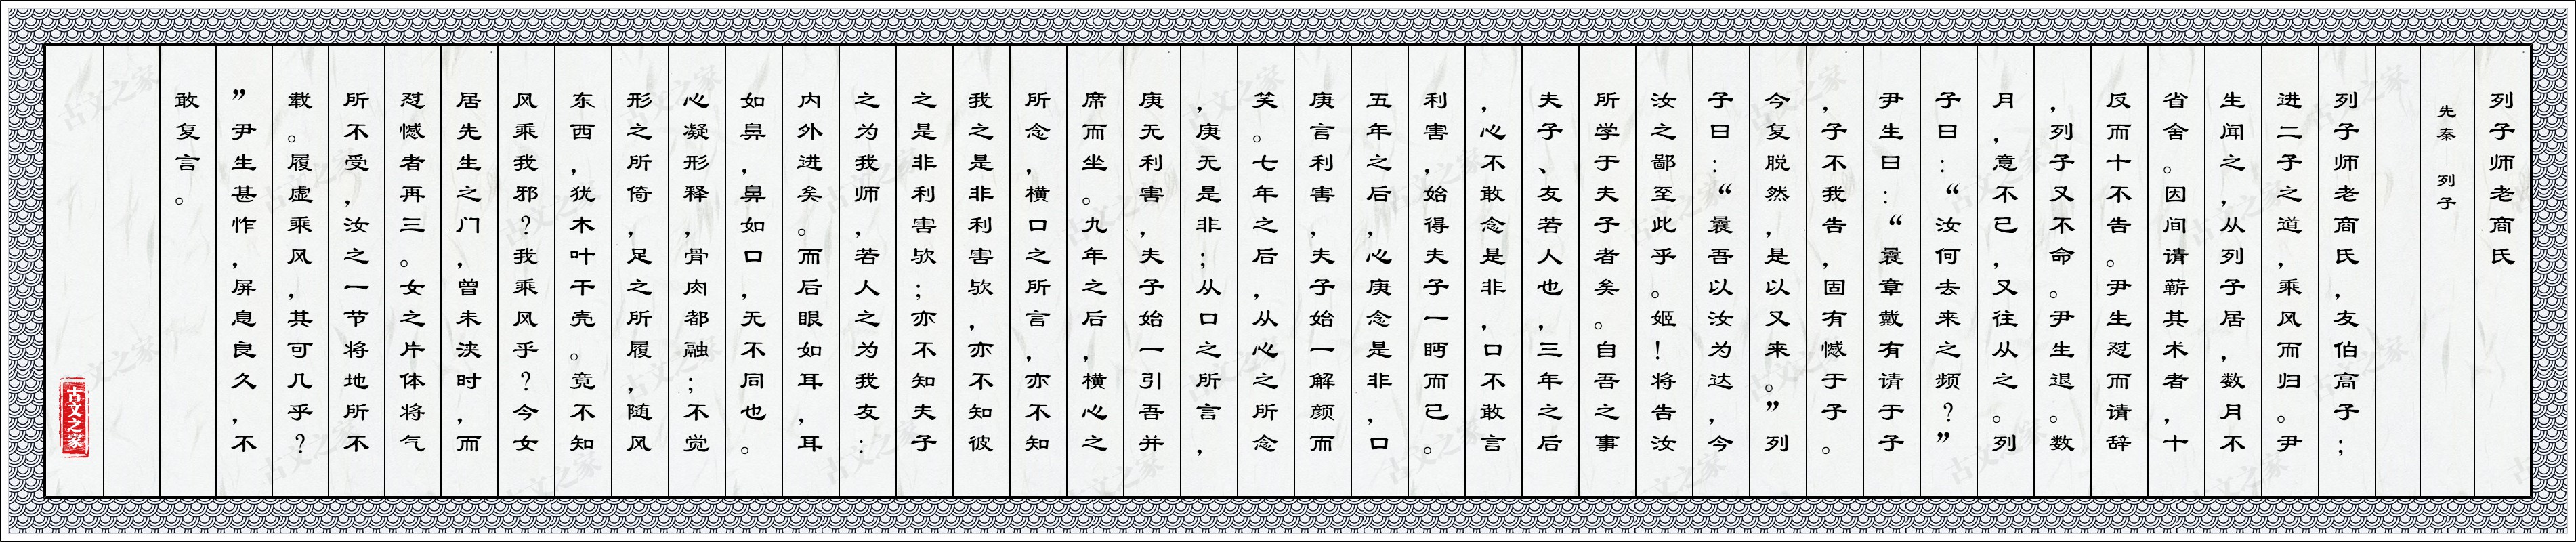 列子师老商氏
先秦—列子
列子师老商氏，友伯高子；
进二子之道，乘风而归。尹
生闻之，从列子居，数月不
省舍。因间请蕲其术者，十
反而十不告。尹生怼而请辞
，列子又不命。尹生退。数
月，意不已，又往从之。列
子曰：“汝何去来之频？”
尹生曰：“曩章戴有请于子
，子不我告，固有憾于子。
今复脱然，是以又来。”列
子曰：“曩吾以汝为达，今
汝之鄙至此乎。姬！将告汝
所学于夫子者矣。自吾之事
夫子、友若人也，三年之后
，心不敢念是非，口不敢言
利害，始得夫子一眄而已。
五年之后，心庚念是非，口
庚言利害，夫子始一解颜而
笑。七年之后，从心之所念
，庚无是非；从口之所言，
庚无利害，夫子始一引吾并
席而坐。九年之后，横心之
所念，横口之所言，亦不知
我之是非利害欤，亦不知彼
之是非利害欤；亦不知夫子
之为我师，若人之为我友：
内外进矣。而后眼如耳，耳
如鼻，鼻如口，无不同也。
心凝形释，骨肉都融；不觉
形之所倚，足之所履，随风
东西，犹木叶干壳。竟不知
风乘我邪？我乘风乎？今女
居先生之门，曾未浃时，而
怼憾者再三。女之片体将气
所不受，汝之一节将地所不
载。履虚乘风，其可几乎？
”尹生甚怍，屏息良久，不
敢复言。
古文之家